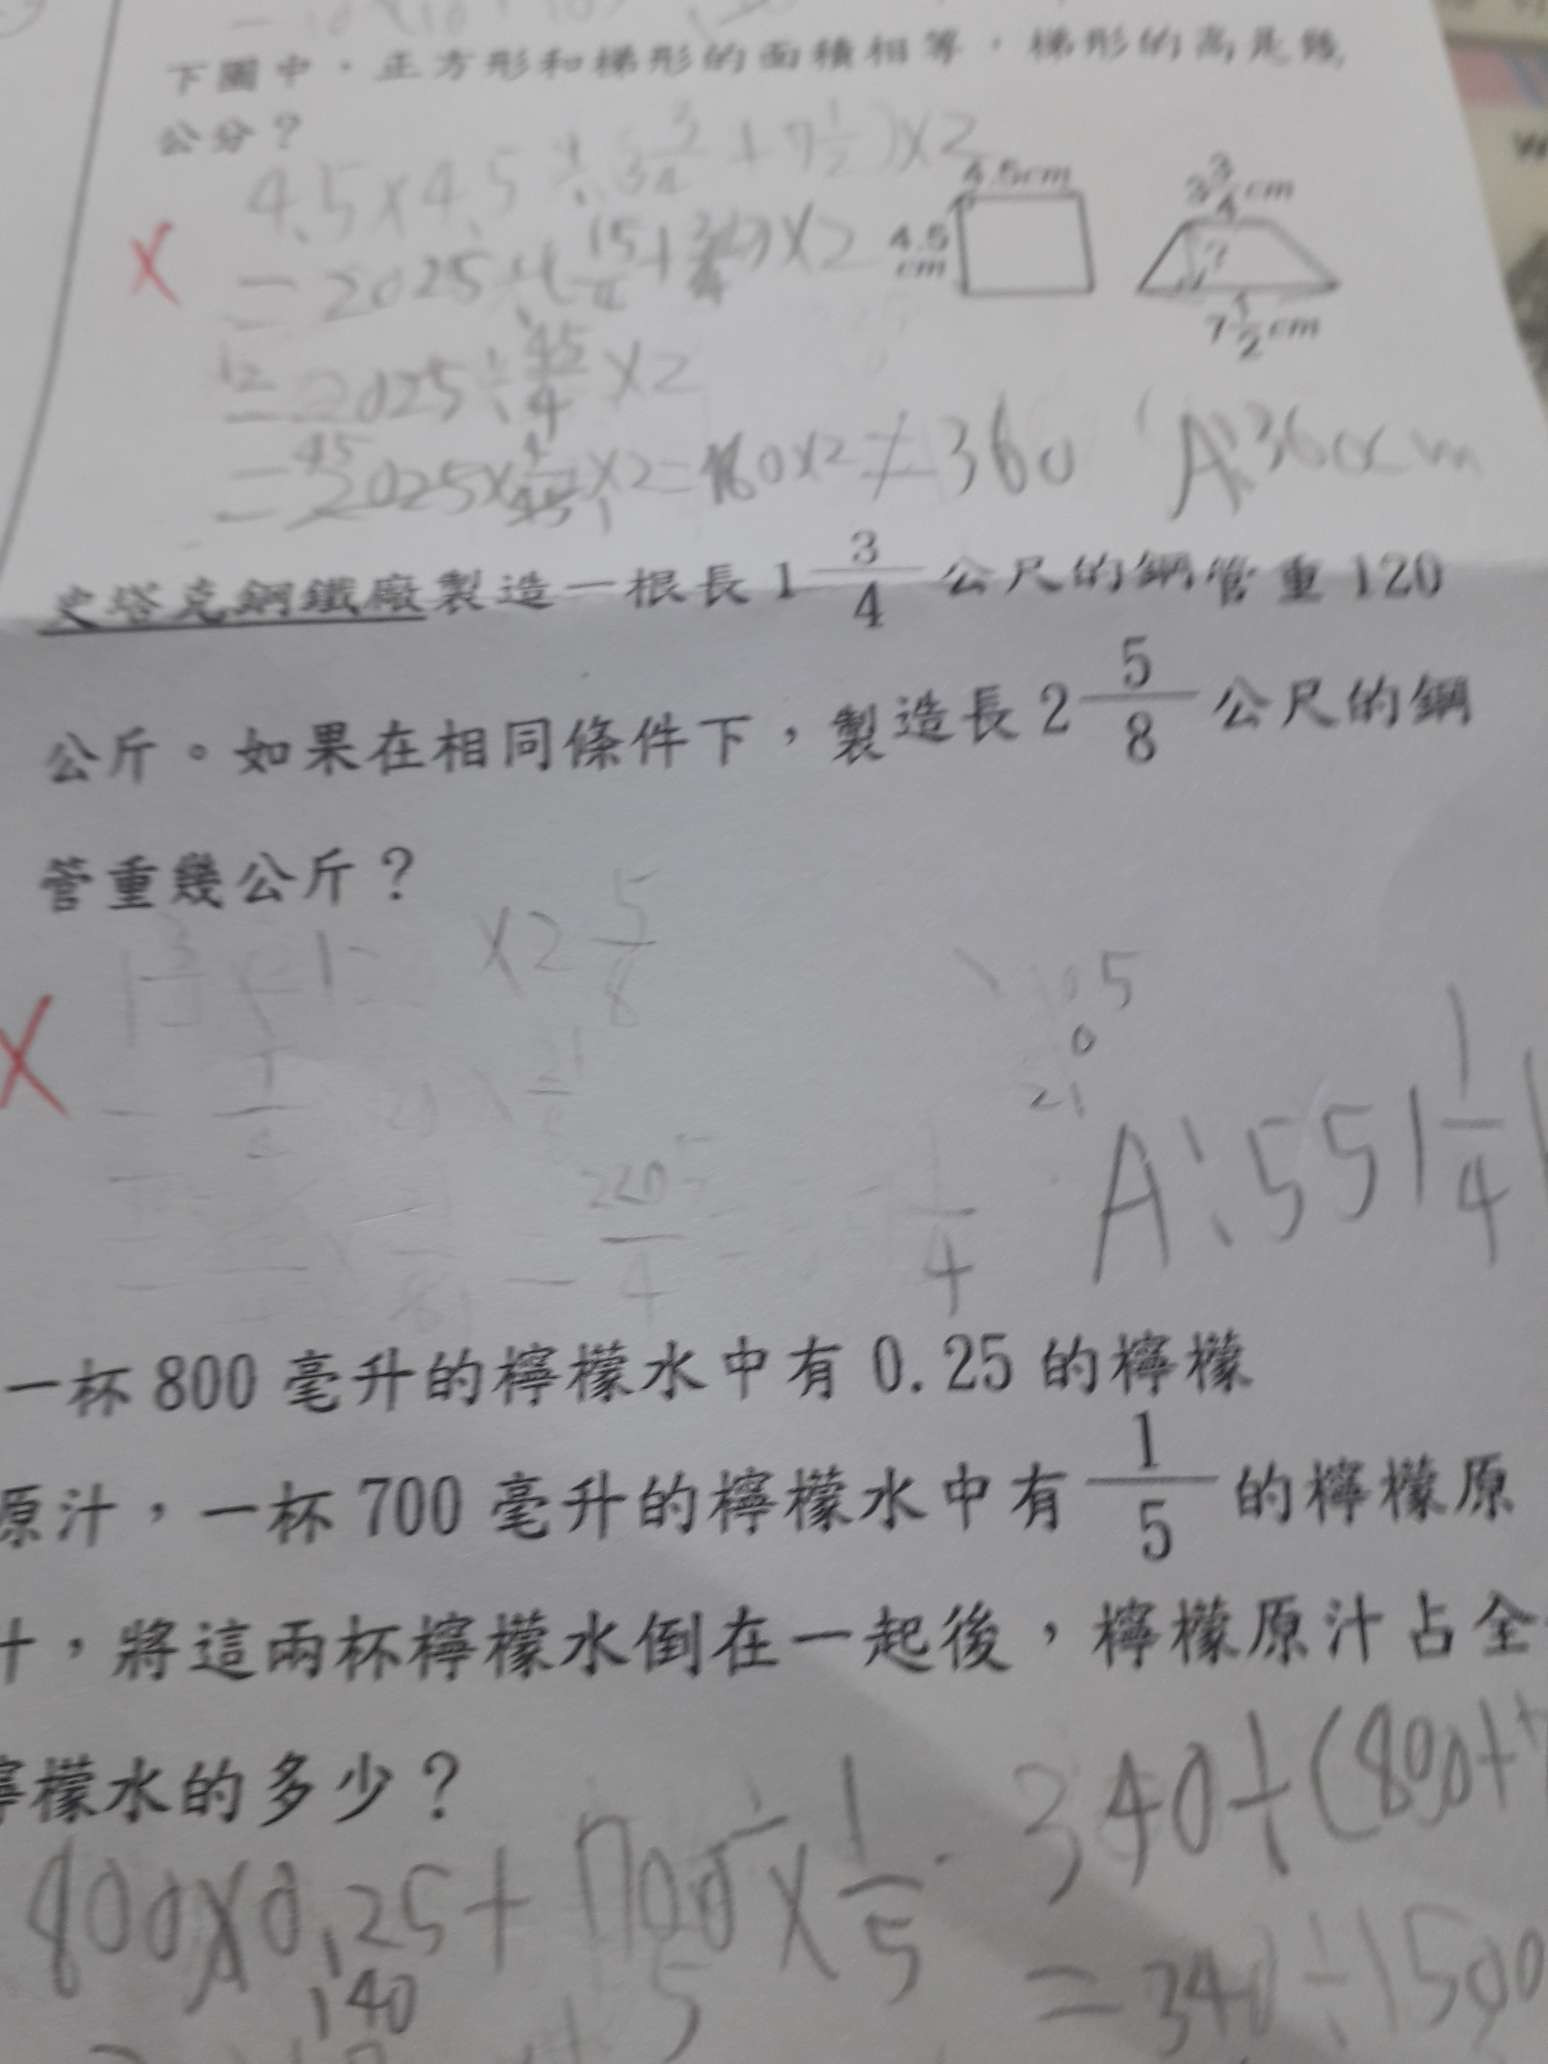 下圖中，正方形和梯形的面積相等，梯形的高是幾
公分？
4.5×4.5÷(3 3/4+7 1/2)×2
4.5cm
3 3/4 cm
4.5
cm
?
7 1/2 cm
×
=2025÷(15/4+
)×2
=2025÷45/4×2
=2025×4/45×2=180×2=360
A:360cm
史塔克鋼鐵廠製造一根長 1 3/4 公尺的鋼管重 120
公斤。如果在相同條件下，製造長 2 5/8 公尺的鋼
管重幾公斤？
×2 5/8
×
A:551 1/4
一杯 800 毫升的檸檬水中有 0.25 的檸檬
原汁，一杯 700 毫升的檸檬水中有 1/5 的檸檬原
汁，將這兩杯檸檬水倒在一起後，檸檬原汁占全
檸檬水的多少？
800×0.25+700×1/5
340÷(800+
140
=340÷1500